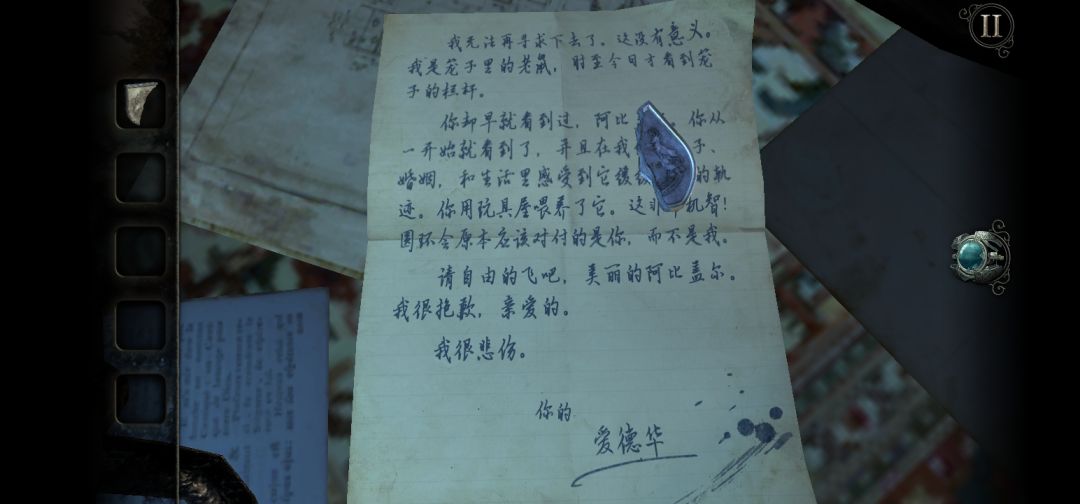 我无法再寻求下去了。这没有意义。
我是笼子里的老鼠，时至今日才看到笼
子的栏杆。
你却早就看到过，阿比 你从
一开始就看到了，并且在我 子、
婚姻，和生活里感受到它缓 的轨
迹。你用玩具屋喂养了它。这非 机智！
圆环会原本应该对付的是你，而不是我。
请自由的飞吧，美丽的阿比盖尔。
我很抱歉，亲爱的。
我很悲伤。
你的
爱德华